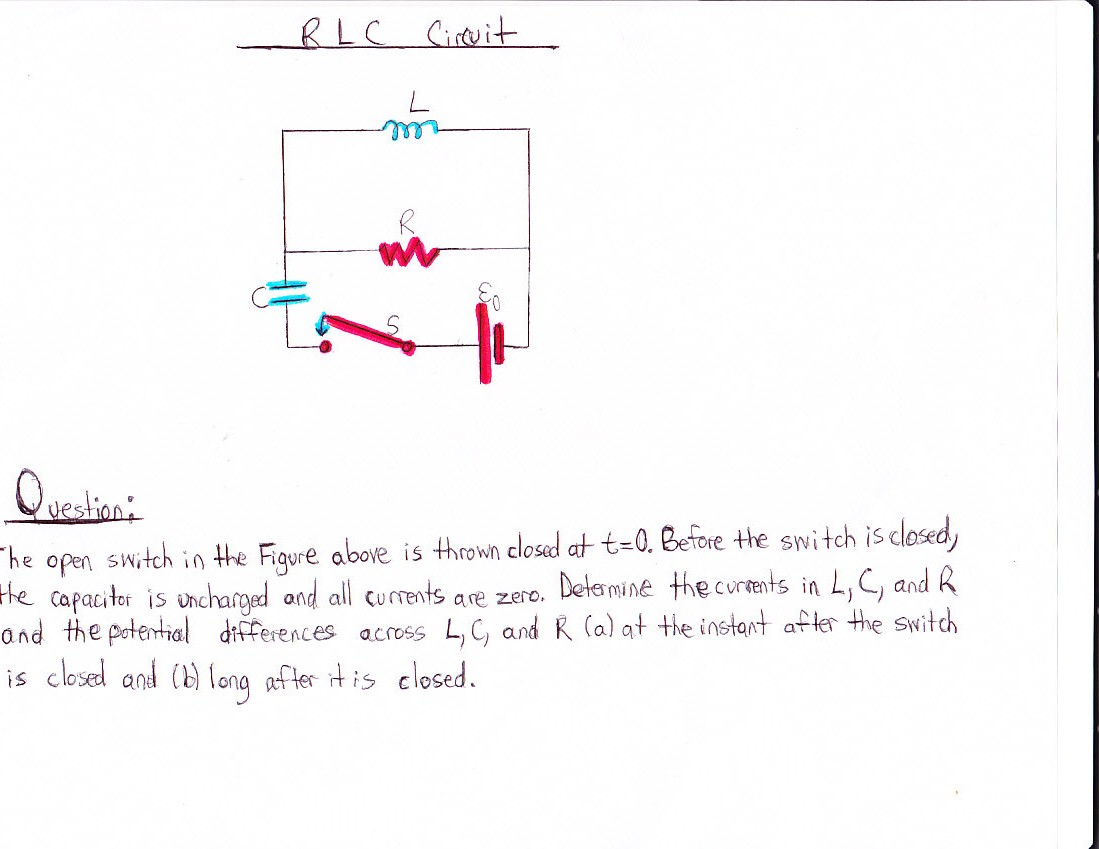 RLC Circuit
L
R
C
ε0
S
Question:
The open switch in the Figure above is thrown closed at t=0. Before the switch is closed,
the capacitor is uncharged and all currents are zero. Determine the currents in L, C, and R
and the potential differences across L, C, and R (a) at the instant after the switch
is closed and (b) long after it is closed.